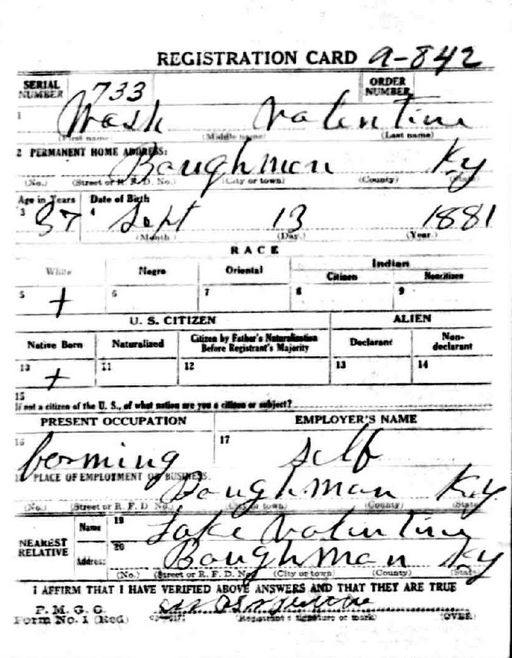 REGISTRATION CARD a-842
SERIAL NUMBER 733 ORDER NUMBER
1 Wash Valentine
(First name) (Middle name) (Last name)
2 PERMANENT HOME ADDRESS:
Baughman Ky
(No.) (Street or R. F. D. No.) (City or town) (County) (State)
Age in Years Date of Birth
3 37 4 Sept 13 1881
(Month) (Day) (Year)
RACE
White Negro Oriental Indian
Citizen Noncitizen
5 + 6 7 8 9
U. S. CITIZEN ALIEN
Native Born Naturalized Citizen by Father's Naturalization Before Registrant's Majority Declarant Non-declarant
10 + 11 12 13 14
15
If not a citizen of the U. S., of what nation are you a citizen or subject?
PRESENT OCCUPATION EMPLOYER'S NAME
16 farming 17 self
18 PLACE OF EMPLOYMENT OR BUSINESS:
Baughman Ky
(No.) (Street or R. F. D. No.) (City or town) (County) (State)
NEAREST RELATIVE Name 19 Valentine
Address 20 Baughman Ky
(No.) (Street or R. F. D. No.) (City or town) (County) (State)
I AFFIRM THAT I HAVE VERIFIED ABOVE ANSWERS AND THAT THEY ARE TRUE
P. M. G. O.
Form No. 1 (Red) (Registrant's signature or mark) (OVER)